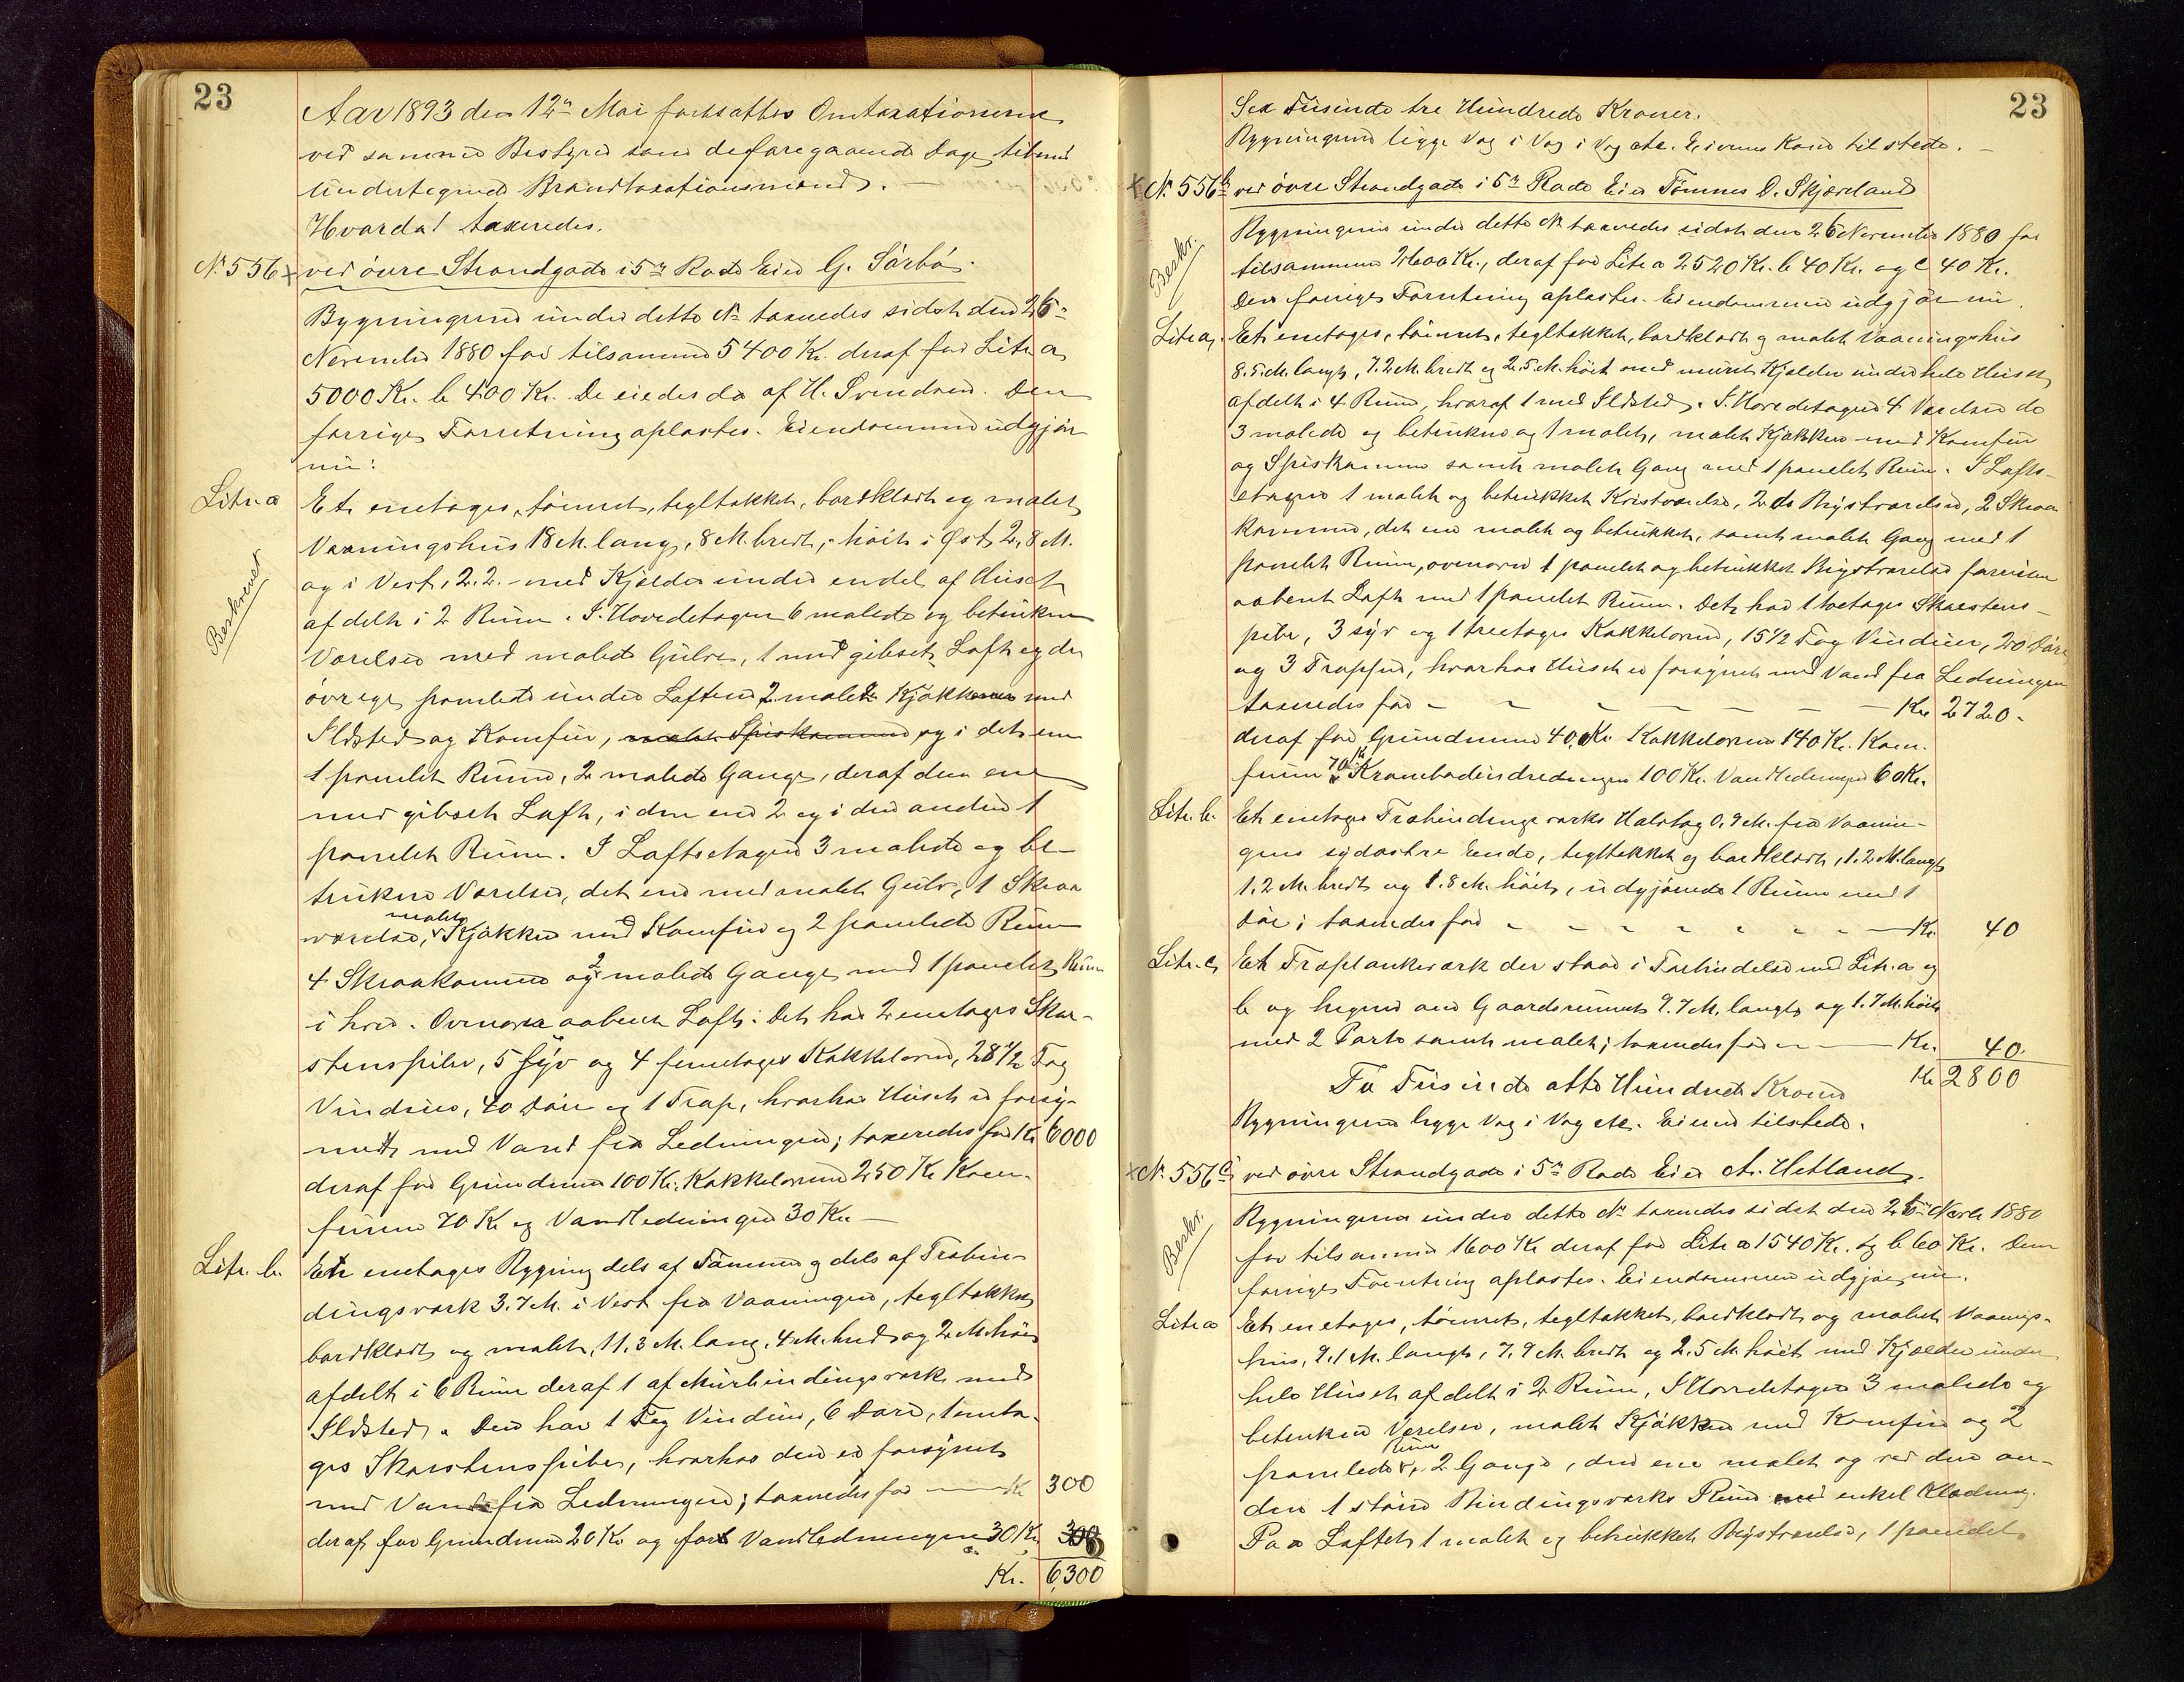 23
Aar 1893 den 12te Mai fortsattes Omtaxationerne
ved samme Bestyrer som deforegaaende Dage tilmed
undertegnede Brandtaxationsmænd. —
Hvorda! taxeredes.
No 556 x ved övre Strandgade i 5te Rode Eier G. Sörbö.
Bygningerne under dette No taxeredes sidst den 26de
November 1880 for tilsammen 5400 Kr. deraf for Litr. a
5000 Kr. b 400 Kr. De eiedes da af H. Svendsen. Den
forrige Forretning aplastes. Eiendommen udgjör
nu:
Litr. a Et enetages, tömret, tegltækket, bordklædt og malet
Beskrevet
Vaaningshus 18 M. lang, 8 M. bredt, höit i Øst 2,8 M.
og i Vest, 2.2. – med Kjælder under endel af Huset
afdelt i 2 Rum. I Hovedetagen 6 malede og betrukne
Værelser med malede Gulve, 1 med gibset Loft og de
övrige panelede under Loftene 2 malede Kjökkener med
Ildsted og Komfur, malet Spiskammer og i det ene
1 panelet Rum, 2 malede Gange, deraf den ene
med gibset Loft, i den ene 2 og i den anden 1
panelet Rum. I Loftsetagen 3 malede og be-
trukne Værelser, det ene med malet Gulv, 1 Skraa
værelse, malet Kjökken med Komfur og 2 panelede Rum
4 Skraakammere og 2 malede Gange med 1 panelet Rum
i hver. Ovenover aabent Loft. Det har 2 enetages Skor-
stenspiber, 5 syv og 4 femetages Kakkelovne, 28 1/2 Fag
Vinduer, 40 Döre og 1 Trap, hvorhos Huset er forsy-
net med Vand fra Ledningen; taxeredes for Kr 6000
deraf for Grundmur 100 Kr. Kakkelovne 250 Kr Kom-
furene 70 Kr og Vandledningen 30 Kr —
Litr. b. Et enetages Bygning dels af Tömmer og dels af Træbin-
dingsværk 3.7 M. i Vest fra Vaaningen, tegltækket
bordklædt og malet, 11.3 M. lang, 4 M. bred og 2 M. höi
afdelt i 6 Rum deraf 1 af Murbindingsværk med
Ildsted. Den har 1 Fag Vindue, 6 Döre, 1 eneta-
ges Skorstenspibe, hvorhos den er forsynet
med Vand fra Ledningen; taxeredes for — Kr 300
deraf for Grundmur 20 Kr og for Vandledningen 30 Kr. 300
Kr. 6,300
23
Sex Tusinde tre Hundrede Kroner.
Bygningerne ligge Væg i Væg i Væg etc. Eierens Kone tilstede. —
x No. 556b ved övre Strandgade i 5te Rode Eier Tönnes D. Skjæveland
Beskr.
Bygningerne under dette No taxeredes sidst den 26 November 1880 for
tilsammen 2600 Kr., deraf for Litr a 2520 Kr. b 40 Kr. og c 40 Kr.
Den forrige Forretning aplastes. Eiendommen udgjör nu.
Litr a, Et enetages, tömret, tegltækket, bordklædt og malet Vaaningshus
8.5 M. langt, 7.2 M. bredt og 2.5 M. höit med muret Kjelder under hele Huset
afdelt i 4 Rum, hvoraf 1 med Ildsted. I Hovedetagen 4 Værelser de
3 malede og betrukne og 1 malet, malet Kjökken med Komfur
og Spiskammer samt malet Gang med 1 panelet Rum. I Lofts-
etagen 1 malet og betrukket Kvistværelse, 2 do Brystværelser, 2 Skraa
kammere, det ene malet og betrukket, samt malet Gang med 1
panelet Rum, ovenover 1 panelet og betrukket Brystværelse forresten
aabent Loft med 1 panelet Rum. Det har 1 toetages Skorstens-
pibe, 3 syv og 1 treetages Kakkelovne, 15 1/2 Fag Vinduer, 20 Döre
og 3 Trapper, hvorhos Huset er forsynet med Vand fra Ledningen
taxeredes for — — — — — — — Kr 2720.
deraf for Grundmur 40 Kr Kakkelovne 140 Kr. Kom-
furen 70 Kr Kramboddindredningen 100 Kr. Vandledningen 60 Kr.
Litr. b. Et enetages Træbindingsværks Halvtag 0.9 M. fra Vaanin-
gens sydöstre Ende, tegltækket og bordklædt, 1.2 M. langt
1.2 M. bredt og 1.8 M. höit, udgjörende 1 Rum med 1
Dör; taxeredes for — — — — — — — Kr. 40
Litr. c, Et Træplankeværk der staar i Forbindelse med Litr. a og
b og hegner om Gaardsrummet 9.7 M. langt, og 1.7 M. höit
med 2 Porte samt malet; taxeredes for — — Kr. 40.
Kr 2800
To Tusinde otte Hundrede Kroner
Bygningerne ligge Væg i Væg etc. Eieren tilstede.
x No. 556c ved övre Strandgade i 5te Rode Eier A. Hetland.
Beskr.
Bygningerne under dette No taxeredes sidst den 26de Novbr 1880
for tilsammen 1600 Kr deraf for Litr a 1540 Kr. og b 60 Kr. Den
forrige Forretning aplastes. Eiendommen udgjör nu.
Litr a Et enetages, tömret, tegltækket, bordklædt og malet Vaanings-
hus, 9.1 M. langt, 7.9 M. bredt og 2.5 M höit med Kjælder under
hele Huset afdelt i 2 Rum, I Hovedetagen 3 malede og
betrukne Værelser, malet Kjökken med Komfur og 2
panelede Rum, 2 Gange, den ene malet og ved den an-
den 1 större Bindingsværks Rum med enkel Klædning.
Paa Loftet 1 malet og betrukket Brystværelse, 1 panelet